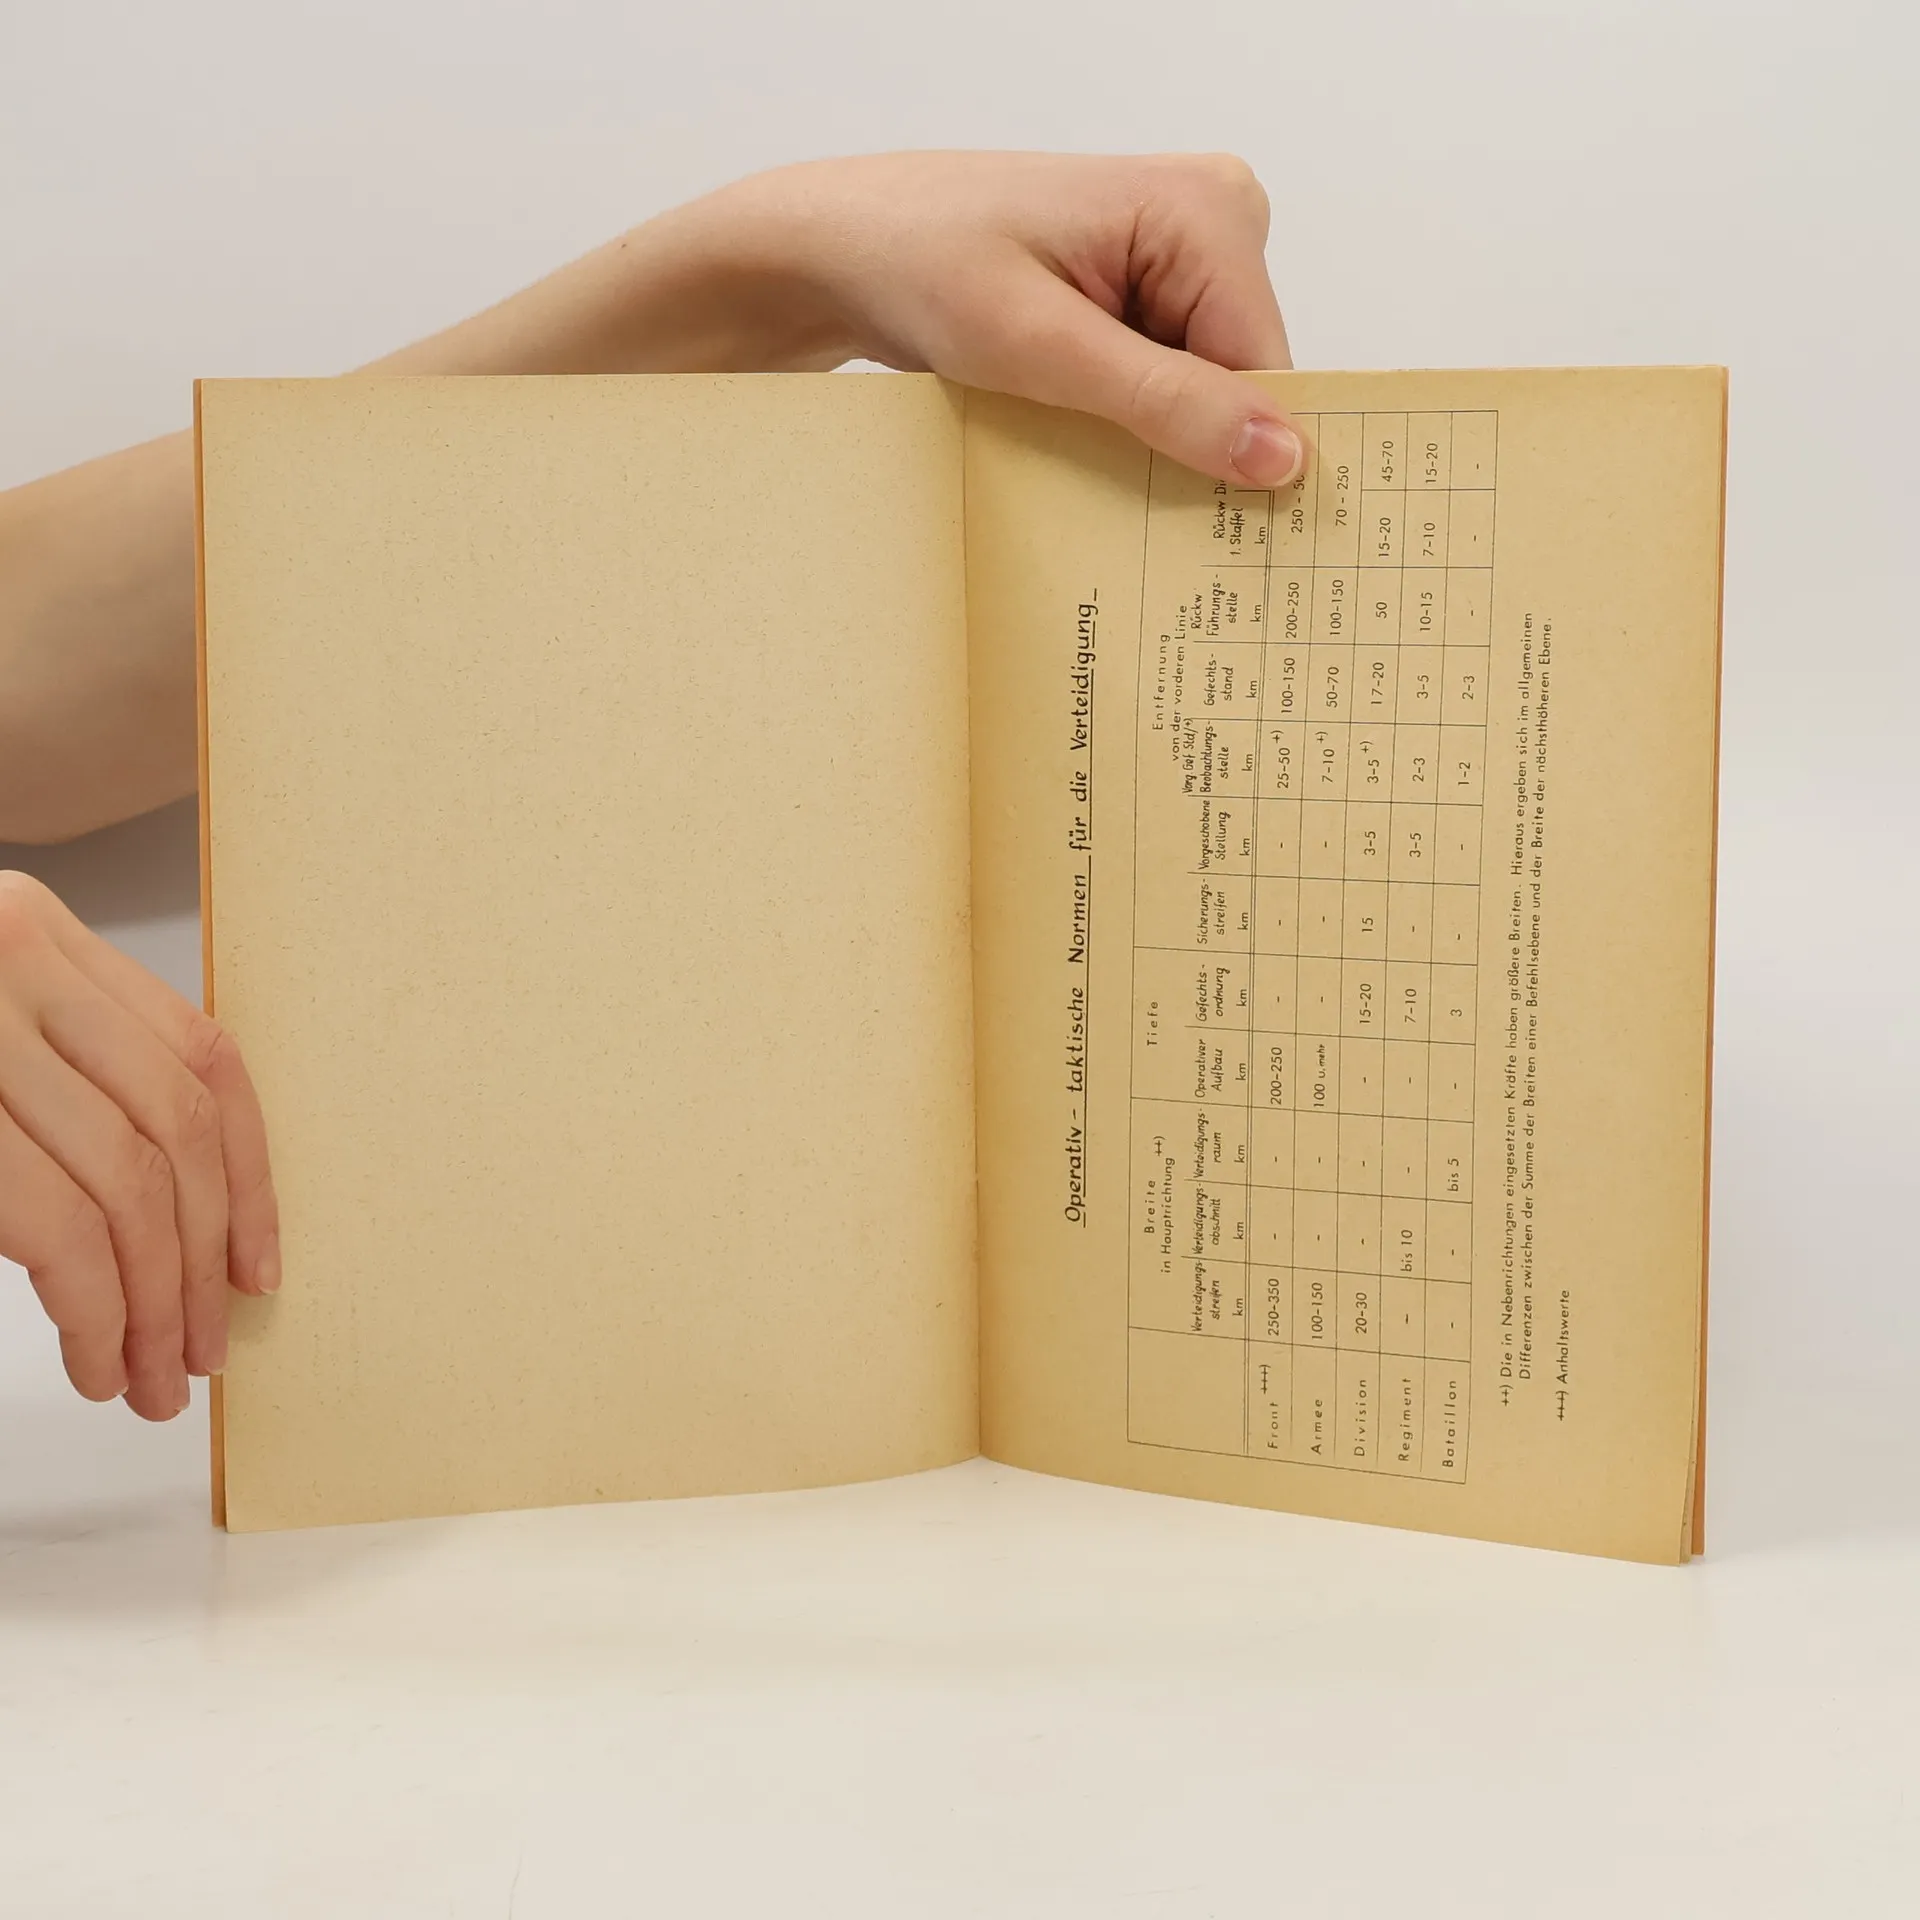 Operativ - taktische Normen für die Verteidigung
Breite
in Hauptrichtung ++)
Tiefe
Entfernung
von der vorderen Linie
Verteidigungs-
streifen
km
Verteidigungs-
abschnitt
km
Verteidigungs-
raum
km
Operativer
Aufbau
km
Gefechts-
ordnung
km
Sicherungs-
streifen
km
Vorgeschobene
Stellung
km
Vorg Gef Std/+)
Beobachtungs-
stelle
km
Gefechts-
stand
km
Rückw
Führungs-
stelle
km
Rückw
1. Staffel
km
Front +++) 250-350 - - 200-250 - - - 25-50 +) 100-150 200-250 250 -
Armee 100-150 - - 100 u. mehr - - - 7-10 +) 50-70 100-150 70 - 250
Division 20-30 - - - 15-20 15 3-5 3-5 +) 17-20 50 15-20 45-70
Regiment - bis 10 - - 7-10 - 3-5 2-3 3-5 10-15 7-10 15-20
Bataillon - - bis 5 - 3 - - 1-2 2-3 - - -
++) Die in Nebenrichtungen eingesetzten Kräfte haben größere Breiten. Hieraus ergeben sich im allgemeinen
Differenzen zwischen der Summe der Breiten einer Befehlsebene und der Breite der nächsthöheren Ebene.
+++) Anhaltswerte